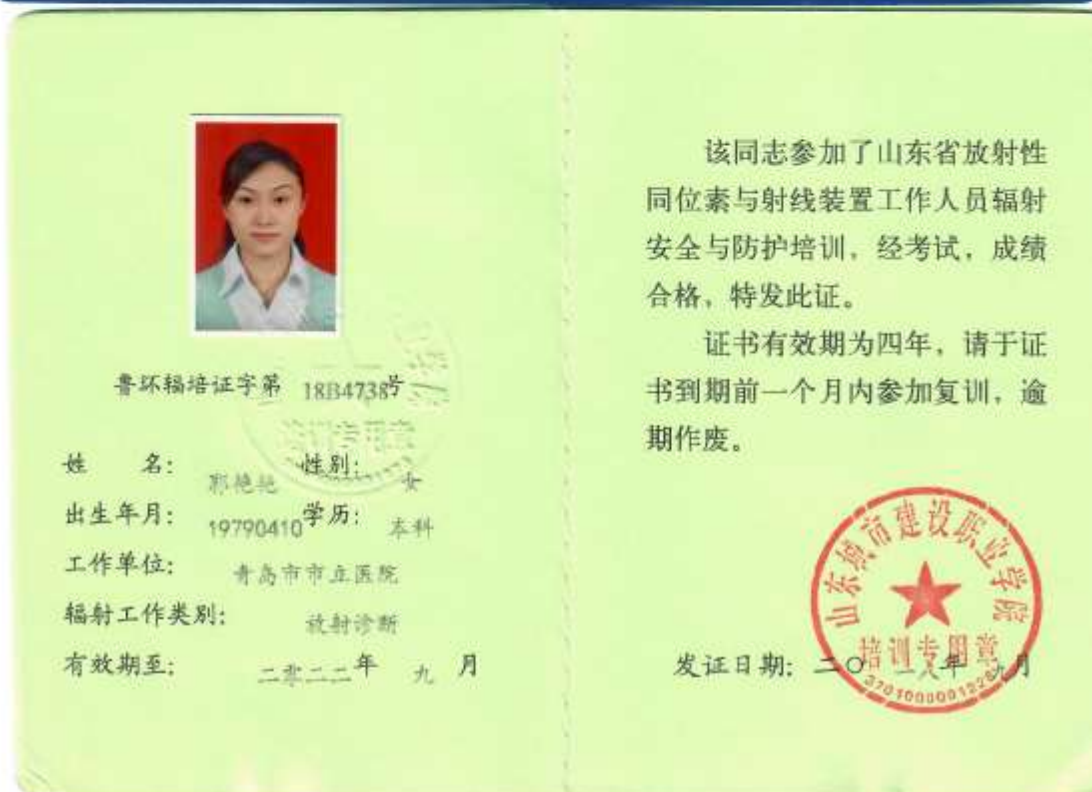 鲁环辐培证字第 18B4738号
姓 名： 郭艳艳 性别： 女
出生年月： 19790410 学历： 本科
工作单位： 青岛市市立医院
辐射工作类别： 放射诊断
有效期至： 二零二二年 九 月
该同志参加了山东省放射性
同位素与射线装置工作人员辐射
安全与防护培训，经考试，成绩
合格，特发此证。
证书有效期为四年，请于证
书到期前一个月内参加复训，逾
期作废。
山东城市建设职业学院
培训专用章
发证日期：二〇一八年 九月
培训专用章